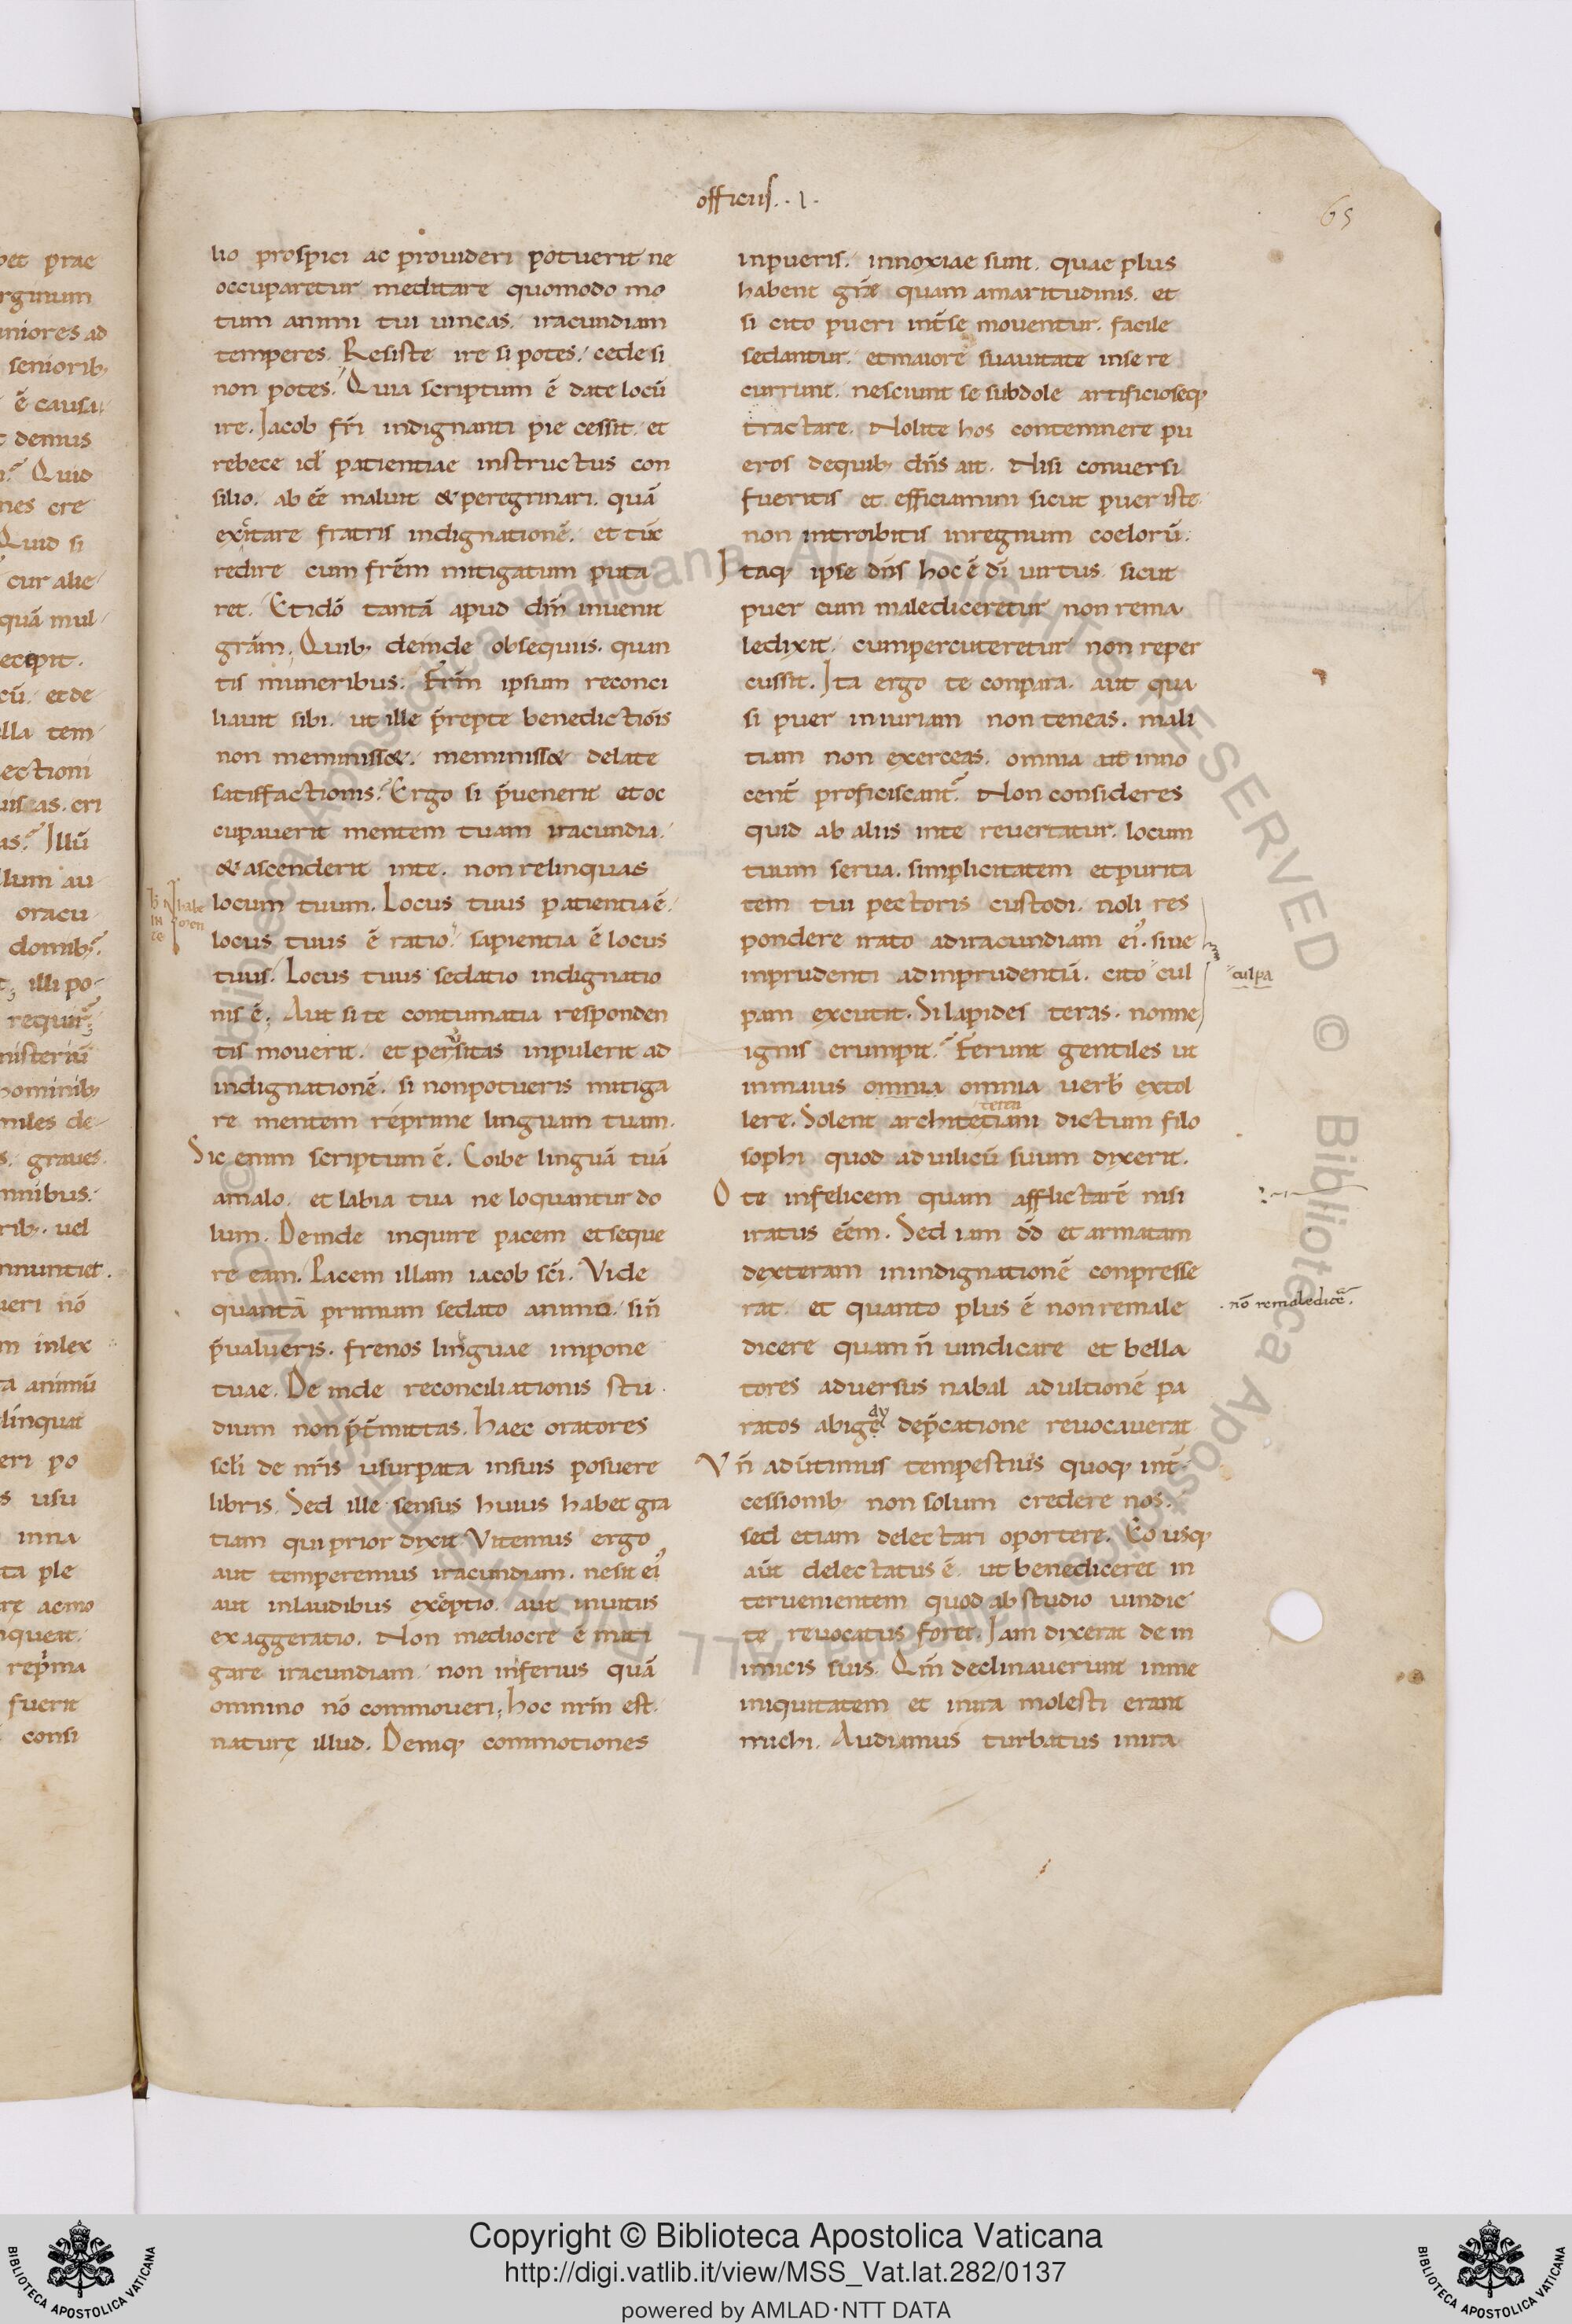 officiis. · I ·
65
lio prospici ac prouideri potuerit ne
occuparetur meditare quomodo mo
tum animi tui uincas. iracundiam
temperes. Resiste ire si potes. cede si
non potes. Quia scriptum ē date locū
ire. Iacob fr̄i indignanti pie cessit. et
rebece id patientiae instructus con
silio. ab eē maluit & peregrinari. quā
excitare fratris indignationē. et tūc
redire cum fr̄em mitigatum puta
ret. Et idō tantā apud dm̄ inuenit
grām. Quib; deinde obsequiis. quan
tis muneribus. Fr̄m ipsum reconci
liauit sibi. ut ille p̄repte benedictiōis
non meminiss&. meminiss& delate
satisfactionis. Ergo si p̄uenerit et oc
cupauerit mentem tuam iracundia.
& ascenderit inte. non relinquas
locum tuum. Locus tuus patientia ē.
locus tuus ē ratio. sapientia ē locus
tuus. Locus tuus sedatio indignatio
nis ē. Aut si te contumatia responden
tis mouerit. et peruersitas inpulerit ad
indignationē. si non potueris mitiga
re mentem reprime linguam tuam.
Sic enim scriptum ē. Coibe linguā tuā
amalo. et labia tua ne loquantur do
lum. Deinde inquire pacem et seque
re eam. Pacem illam iacob sc̄i. Vide
quantā primum sedato animo. sin̄
p̄ualueris. frenos linguae impone
tuae. Deinde reconciliationis stu
dium non p̄t̄mittas. Haec oratores
sc̄li de nr̄is usurpata insuis posuere
libris. Sed ille sensus huius habet gra
tiam qui prior dixit. Vitemus ergo
aut temperemus iracundiam. ne sit ei'
aut inlaudibus exceptio. aut inuitus
exaggeratio. Non mediocre ē miti
gare iracundiam. non inferius quā
omnino nō commoueri. hoc nr̄m est.
naturę illud. Deniq; commotiones
inpueris. innoxiae sunt. quae plus
habent grāe quam amaritudinis. et
si cito pueri int̄ se mouentur. facile
sedantur. et maiore suauitate inse re
currunt. nesciunt se subdole artificioseq;
tractare. Nolite hos contemnere pu
eros dequib; dn̄s ait. Nisi conuersi
fueritis et efficiamini sicut puer iste.
non introibitis inregnum coelorū.
Itaq; ipse dn̄s hoc ē dī uirtus. sicut
puer cum malediceretur non rema
ledixit. cum percuteretur non reper
cussit. Ita ergo te conpara. aut qua
si puer iniuriam non teneas. mali
tiam non exerceas. omnia ad inno
cent̄ proficiscant̄. Non consideres
quid ab aliis inte reuertatur. locum
tuum serua. simplicitatem et purita
tem tui pectoris custodi. noli res
pondere irato ad iracundiam ei'. siue
inprudenti ad inprudentiā. cito cul
pam excutit. Si lapides teras. nonne
ignis erumpit. Ferunt gentiles ut
inmaius omnia omnia uerb̄ extol
lere. Solent architectiani dictum filo
sophi quod ad uilicū suum dixerit.
O te infelicem quam afflictarē nisi
iratus eēm. Sed iam dd̄ et armatam
dexteram inindignationē conpresse
rat. et quanto plus ē non remale
dicere quam n̄ uindicare et bella
tores aduersus nabal ad ultionē pa
ratos abigę dep̄catione reuocauerat
Vn̄ aduertimus tempestiuis quoq; int̄
cessionib; non solum credere nos.
sed etiam delectari oportere. Eo usq;
aūt delectatus ē. ut benediceret in
teruenientem quod ab studio uindic
te reuocatus foret. Iam dixerat de in
imicis suis. Qm̄ declinauerunt inme
iniquitatem et inira molesti erant
michi. Audiamus turbatus inira
culpa
nō remaledicē.
Copyright © Biblioteca Apostolica Vaticana
http://digi.vatlib.it/view/MSS_Vat.lat.282/0137
powered by AMLAD·NTT DATA
BIBLIOTECA APOSTOLICA VATICANA
BIBLIOTECA APOSTOLICA VATICANA